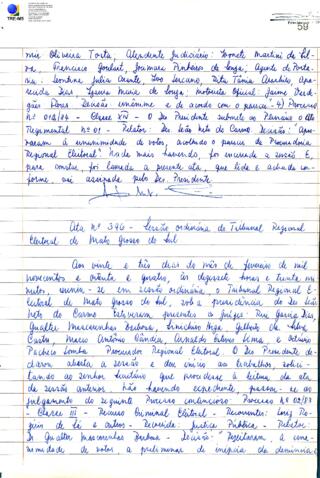 TRE-MS
59
mir Oliveira Torta; Atendente Judiciário: Ivonete Martins da Sil-
va, Francisco Goulart, Joumara Pinheiro de Souza; Agente de Porta-
ria: Leontina Julia
recida Dias, Motorista Oficial: Jaime Ber-
Decisão unânime e de acordo com o parecer". 4) Processo
nº 012/84 - Classe VIII - O Des. Presidente submete ao Plenário o Ato
Regimental nº 01 - Relator: Des. Leão Neto do Carmo. Decisão: "Apro-
varam à unanimidade de votos, acolhendo o parecer da Procuradoria
Regional Eleitoral." Nada mais havendo, foi encerrada a sessão. E,
para constar, foi lavrada a presente ata, que lida e achada con-
forme, vai assinada pelo Des. Presidente.
Ata nº 396 - Sessão ordinária do Tribunal Regional
Eleitoral de Mato Grosso do Sul
Aos vinte e três dias do mês de fevereiro de mil
novecentos e oitenta e quatro, às dezessete horas e trinta mi-
nutos, reuniu-se em sessão ordinária, o Tribunal Regional E-
leitoral de Mato Grosso do Sul, sob a presidência do Des. Leão
Neto do Carmo. Estiveram presentes os juízes: Rui Garcia Dias,
Gualter Mascarenhas Barbosa, Gilberto da Silva
Castro, Marco Antônio Cândia, Arnaldo Esteves Lima, e
Pacheco Lomba Procurador Regional Eleitoral. O Des. Presidente de-
clarou aberta a sessão e deu início aos trabalhos, solici-
tando ao senhor Secretário que procedesse à leitura da ata
da sessão anterior. Não havendo expediente, passou-se ao
julgamento do seguinte Processo contencioso: Processo nº 02/83
- Classe III - Recurso Criminal Eleitoral - Recorrentes: Luiz
e outros - Recorrida: Justiça Pública - Relator:
Dr. Gualter Mascarenhas Barbosa - Decisão: "Rejeitaram, à una-
nimidade de votos a preliminar de inépcia da denúncia